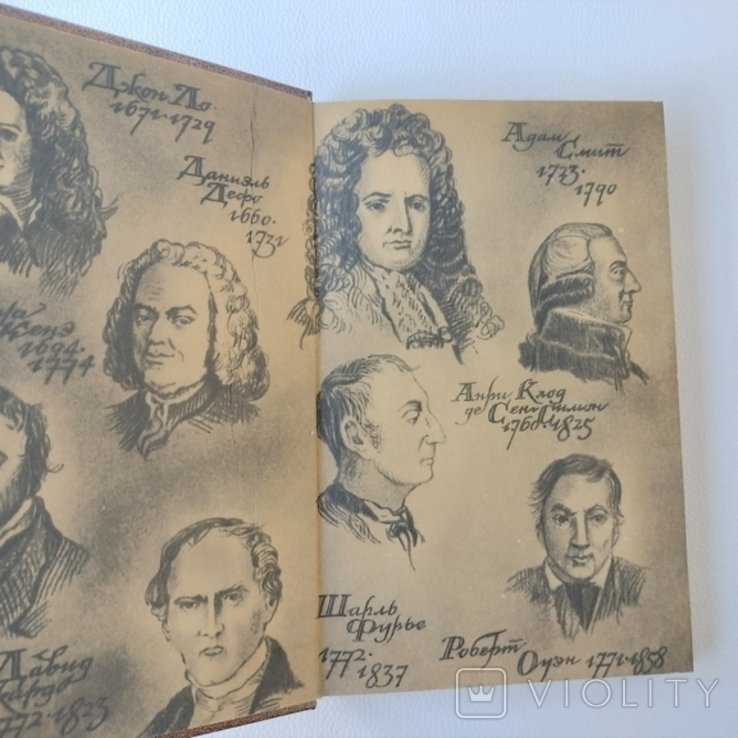 Джон Ло
1671-1729
Даниэль
Дефо
1660-
1731
Кенэ
1694-
1774
Давид
1823
Адам
Смит
1723-
1790
Анри Клод
де Сен-Симон
1760-1825
Шарль
Фурье
1772-
1837
Роберт
Оуэн 1771-1858
VIOLITY